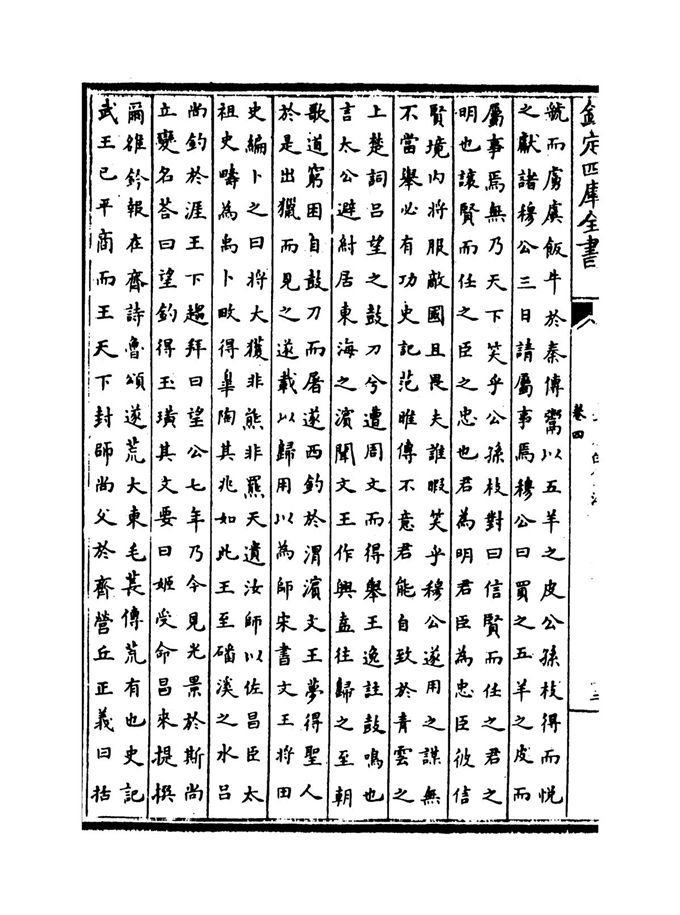 欽定四庫全書
卷四
虢而虜虞飯牛於秦傳鬻以五羊之皮公孫枝得而悦
之獻諸穆公三日請屬事焉穆公曰買之五羊之皮而
屬事焉無乃天下笑乎公孫枝對曰信賢而任之君之
明也讓賢而任之臣之忠也君為明君臣為忠臣彼信
賢境内將服敵國且畏夫誰暇笑乎穆公遂用之謀無
不當舉必有功史記范睢傳不意君能自致於青雲之
上楚詞吕望之鼓刀兮遭周文而得舉王逸註鼓鳴也
言太公避紂居東海之濱聞文王作興盍往歸之至朝
歌道窮困自鼓刀而屠遂西釣於渭濱文王夢得聖人
於是出獵而見之遂載以歸用以為師宋書文王將田
史編卜之曰將大獲非熊非羆天遺汝師以佐昌臣太
祖史疇為禹卜畋得臯陶其兆如此王至磻溪之水吕
尚釣於涯王下趨拜曰望公七年乃今見光景於斯尚
立變名荅曰望釣得玉璜其文要曰姬受命昌來提撰
爾雒鈐報在齊詩魯頌遂荒大東毛萇傳荒有也史記
武王已平商而王天下封師尚父於齊營丘正義曰括